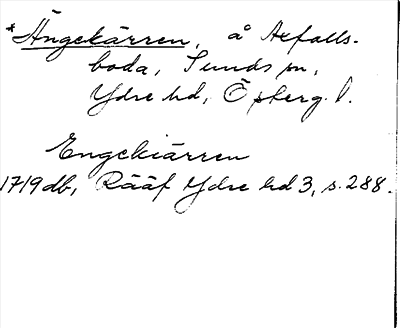 *Ängekärren, å Axfalls-
boda, Sunds sn,
Ydre hd, Östergl.
Engekiärren
1719 db, Rääf Ydre hd 3, s. 288.